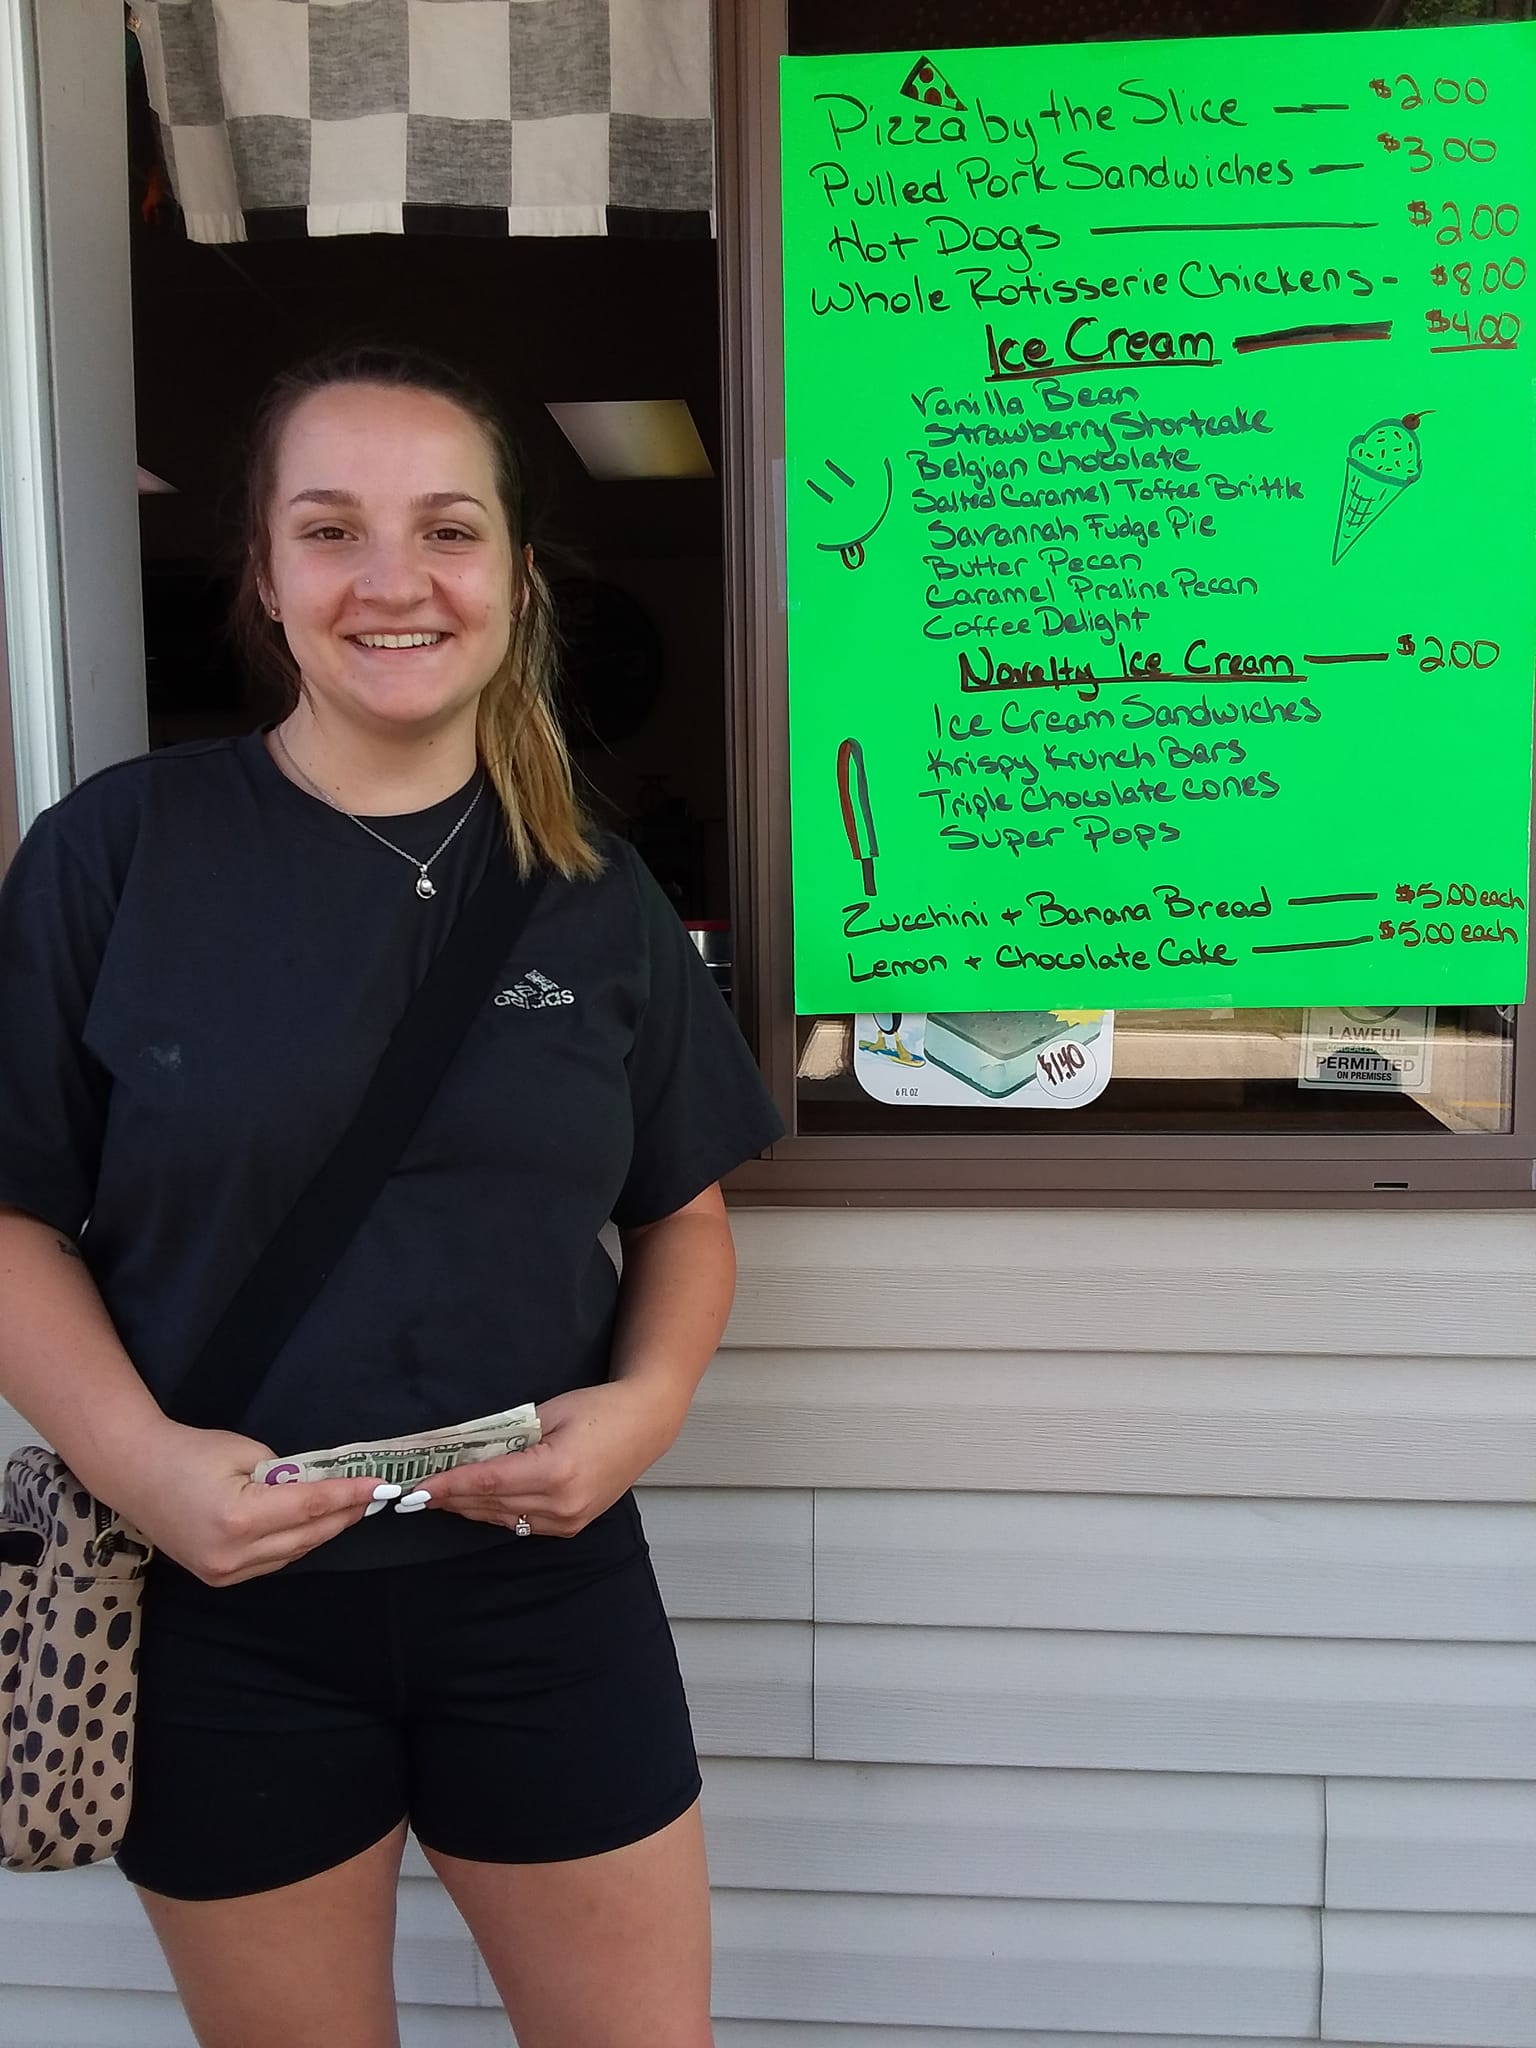 Pizza by the Slice — $2.00
Pulled Pork Sandwiches — $3.00
Hot Dogs — $2.00
Whole Rotisserie Chickens - $8.00
Ice Cream — $4.00
Vanilla Bean
Strawberry Shortcake
Belgian Chocolate
Salted Caramel Toffee Brittle
Savannah Fudge Pie
Butter Pecan
Caramel Praline Pecan
Coffee Delight
Novelty Ice Cream — $2.00
Ice Cream Sandwiches
Krispy Krunch Bars
Triple Chocolate cones
Super Pops
Zucchini + Banana Bread — $5.00 each
Lemon + Chocolate Cake — $5.00 each
adidas
$1.40
6 FL OZ
LAWFUL
CONCEALED CARRY
PERMITTED
ON PREMISES
5